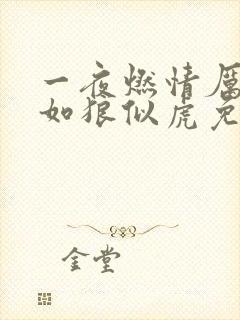 一夜燃情厲
如狼似虎免
金堂